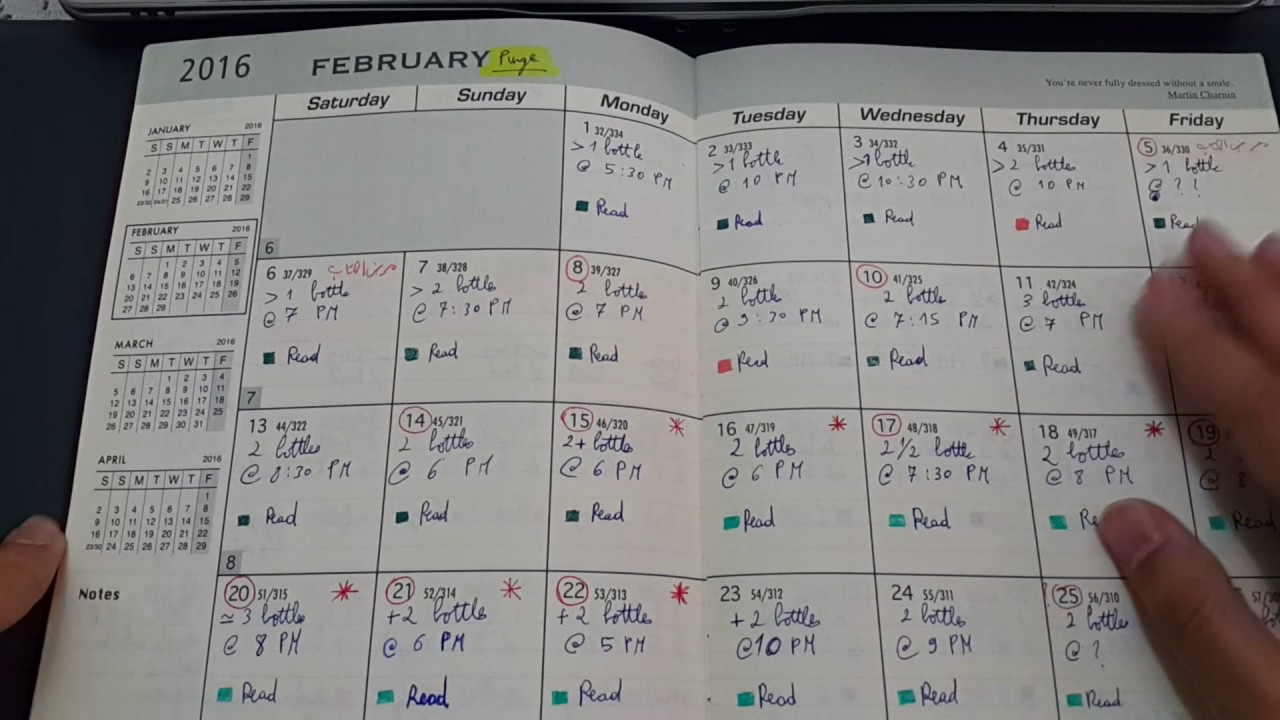 2016 FEBRUARY Purge
You're never fully dressed without a smile.
Martin Charnin
Saturday Sunday Monday Tuesday Wednesday Thursday Friday
1 32/334
>1 bottle
@ 5:30 PM
Read
2 33/333
>1 bottle
@ 10 PM
Read
3 34/332
>1 bottle
@ 10:30 PM
Read
4 35/331
>2 bottle
@ 10 PM
Read
5 36/330
>1 bottle
@ ? !
Read
6
6 37/329
>1 bottle
@ 7 PM
Read
7 38/328
>2 bottles
@ 7:30 PM
Read
8 39/327
2 bottles
@ 7 PM
Read
9 40/326
2 bottle
@ 9:30 PM
Read
10 41/325
2 bottles
@ 7:15 PM
Read
11 42/324
3 bottles
@ 7 PM
Read
7
13 44/322
2 bottles
@ 8:30 PM
Read
14 45/321
2 bottles
@ 6 PM
Read
15 46/320 *
2+ bottles
@ 6 PM
Read
16 47/319 *
2 bottles
@ 6 PM
Read
17 48/318 *
2 1/2 bottle
@ 7:30 PM
Read
18 49/317 *
2 bottles
@ 8 PM
Re
19
2
@ 8
Read
8
20 51/315 *
≃ 3 bottles
@ 8 PM
Read
21 52/314 *
+2 bottles
@ 6 PM
Read
22 53/313 *
+2 bottles
@ 5 PM
Read
23 54/312
+2 bottles
@ 10 PM
Read
24 55/311
2 bottles
@ 9 PM
Read
25 56/310
2 bottles
@ ?
Read
JANUARY 2016
S S M T W T F
1
2 3 4 5 6 7 8
9 10 11 12 13 14 15
16 17 18 19 20 21 22
23/30 24/31 25 26 27 28 29
FEBRUARY 2016
S S M T W T F
1 2 3 4 5
6 7 8 9 10 11 12
13 14 15 16 17 18 19
20 21 22 23 24 25 26
27 28 29
MARCH 2016
S S M T W T F
1 2 3 4
5 6 7 8 9 10 11
12 13 14 15 16 17 18
19 20 21 22 23 24 25
26 27 28 29 30 31
APRIL 2016
S S M T W T F
1
2 3 4 5 6 7 8
9 10 11 12 13 14 15
16 17 18 19 20 21 22
23/30 24 25 26 27 28 29
Notes